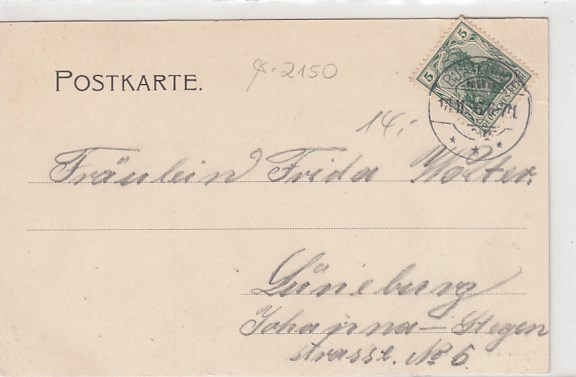 x-2150
POSTKARTE.
14,-
Fräulein Frida Wolter.
Lüneburg
Johanna-Stegen
strasse. No 6.
5 5
DEUTSCHES REICH